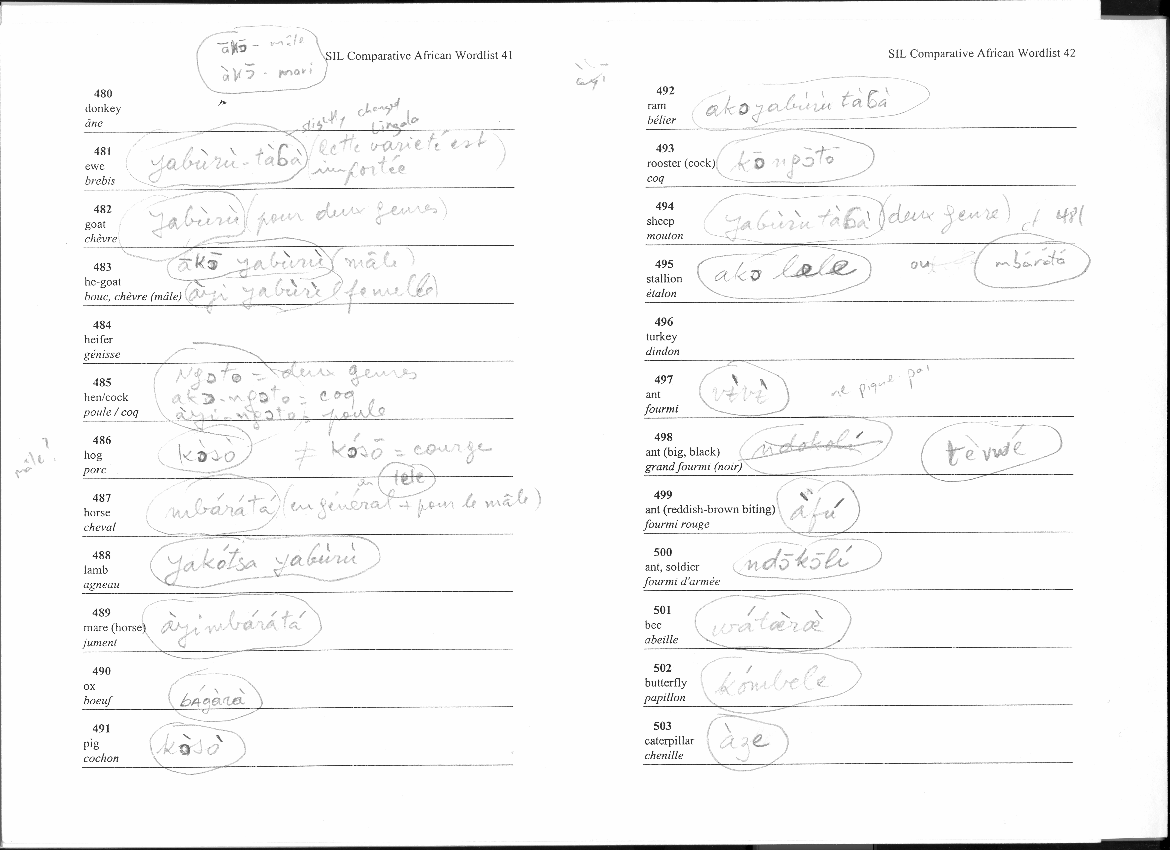 ākɔ̄ - mâle
àkɔ̄ - mari
SIL Comparative African Wordlist 41
480
donkey
âne
slightly changed
Lingala
481
ewe
brebis
yabùrù-tàɓà (cette varieté est
importée)
482
goat
chèvre
yabùrù (pour deux genres)
483
he-goat
bouc, chèvre (mâle)
ākɔ̄ yabùrù (mâle)
àyi yabùrù (femelle)
484
heifer
génisse
485
hen/cock
poule / coq
Ngɔtɔ = deux genres
akɔ-ngɔtɔ = coq
àyi-ngɔtɔ = poule
mâle?
486
hog
porc
kɔ̀sɔ̀ ≠ kɔ́sɔ̄ = courge
487
horse
cheval
ou lele
mbárátá (en général + pour le mâle)
488
lamb
agneau
yakótsa yabùrù
489
mare (horse)
jument
àyi mbárátá
490
ox
boeuf
bágàrà
491
pig
cochon
kɔ̀sɔ̀
SIL Comparative African Wordlist 42
492
ram
bélier
akɔ yabùrù tàɓà
493
rooster (cock)
coq
kɔ̄ ngɔ̄tɔ̄
494
sheep
mouton
yabùrù tàɓà (deux genre) cf 481
495
stallion
étalon
akɔ lele ou mbárátá
496
turkey
dindon
497
ant
fourmi
vɨ̀vɨ̀ ne pique pas
498
ant (big, black)
grand fourmi (noir)
ndɔkɔlí
499
ant (reddish-brown biting)
fourmi rouge
àfú
500
ant, soldier
fourmi d'armée
ndɔ̄kɔ̄lí
501
bee
abeille
wátæræ̀
502
butterfly
papillon
kómbele
503
caterpillar
chenille
àʒe